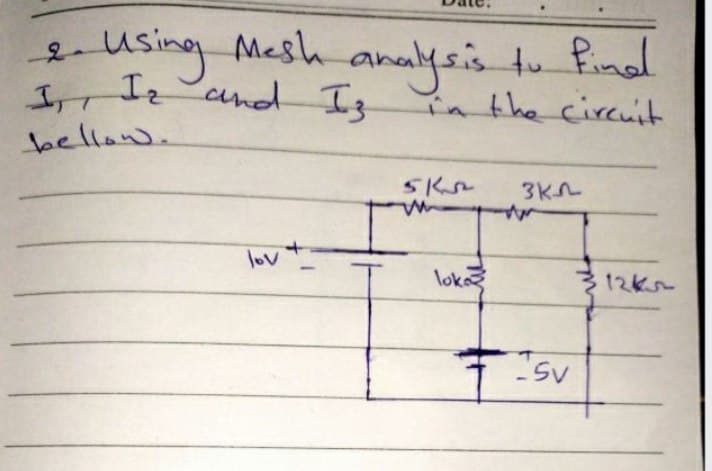 Date:
2- Using Mesh analysis to find
I₁, I₂ and I₃ in the circuit
bellow.
5KΩ 3KΩ
10V + -
10kΩ 12KΩ
+ - 5V